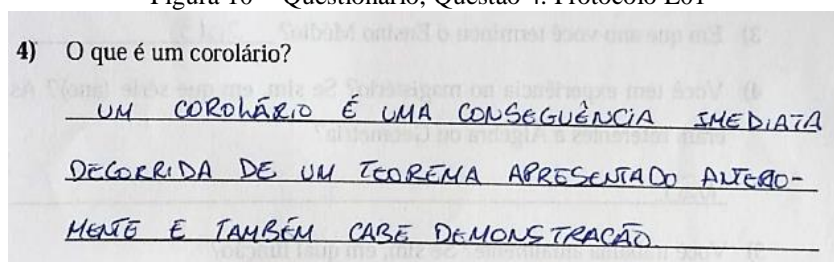 Figura 10 – Questionário, Questão 4: Protocolo E01
4) O que é um corolário?
UM COROLÁRIO É UMA CONSEGUÊNCIA IMEDIATA
DECORRIDA DE UM TEOREMA APRESENTADO ANTERIO-
MENTE E TAMBÉM CABE DEMONSTRAÇÃO.